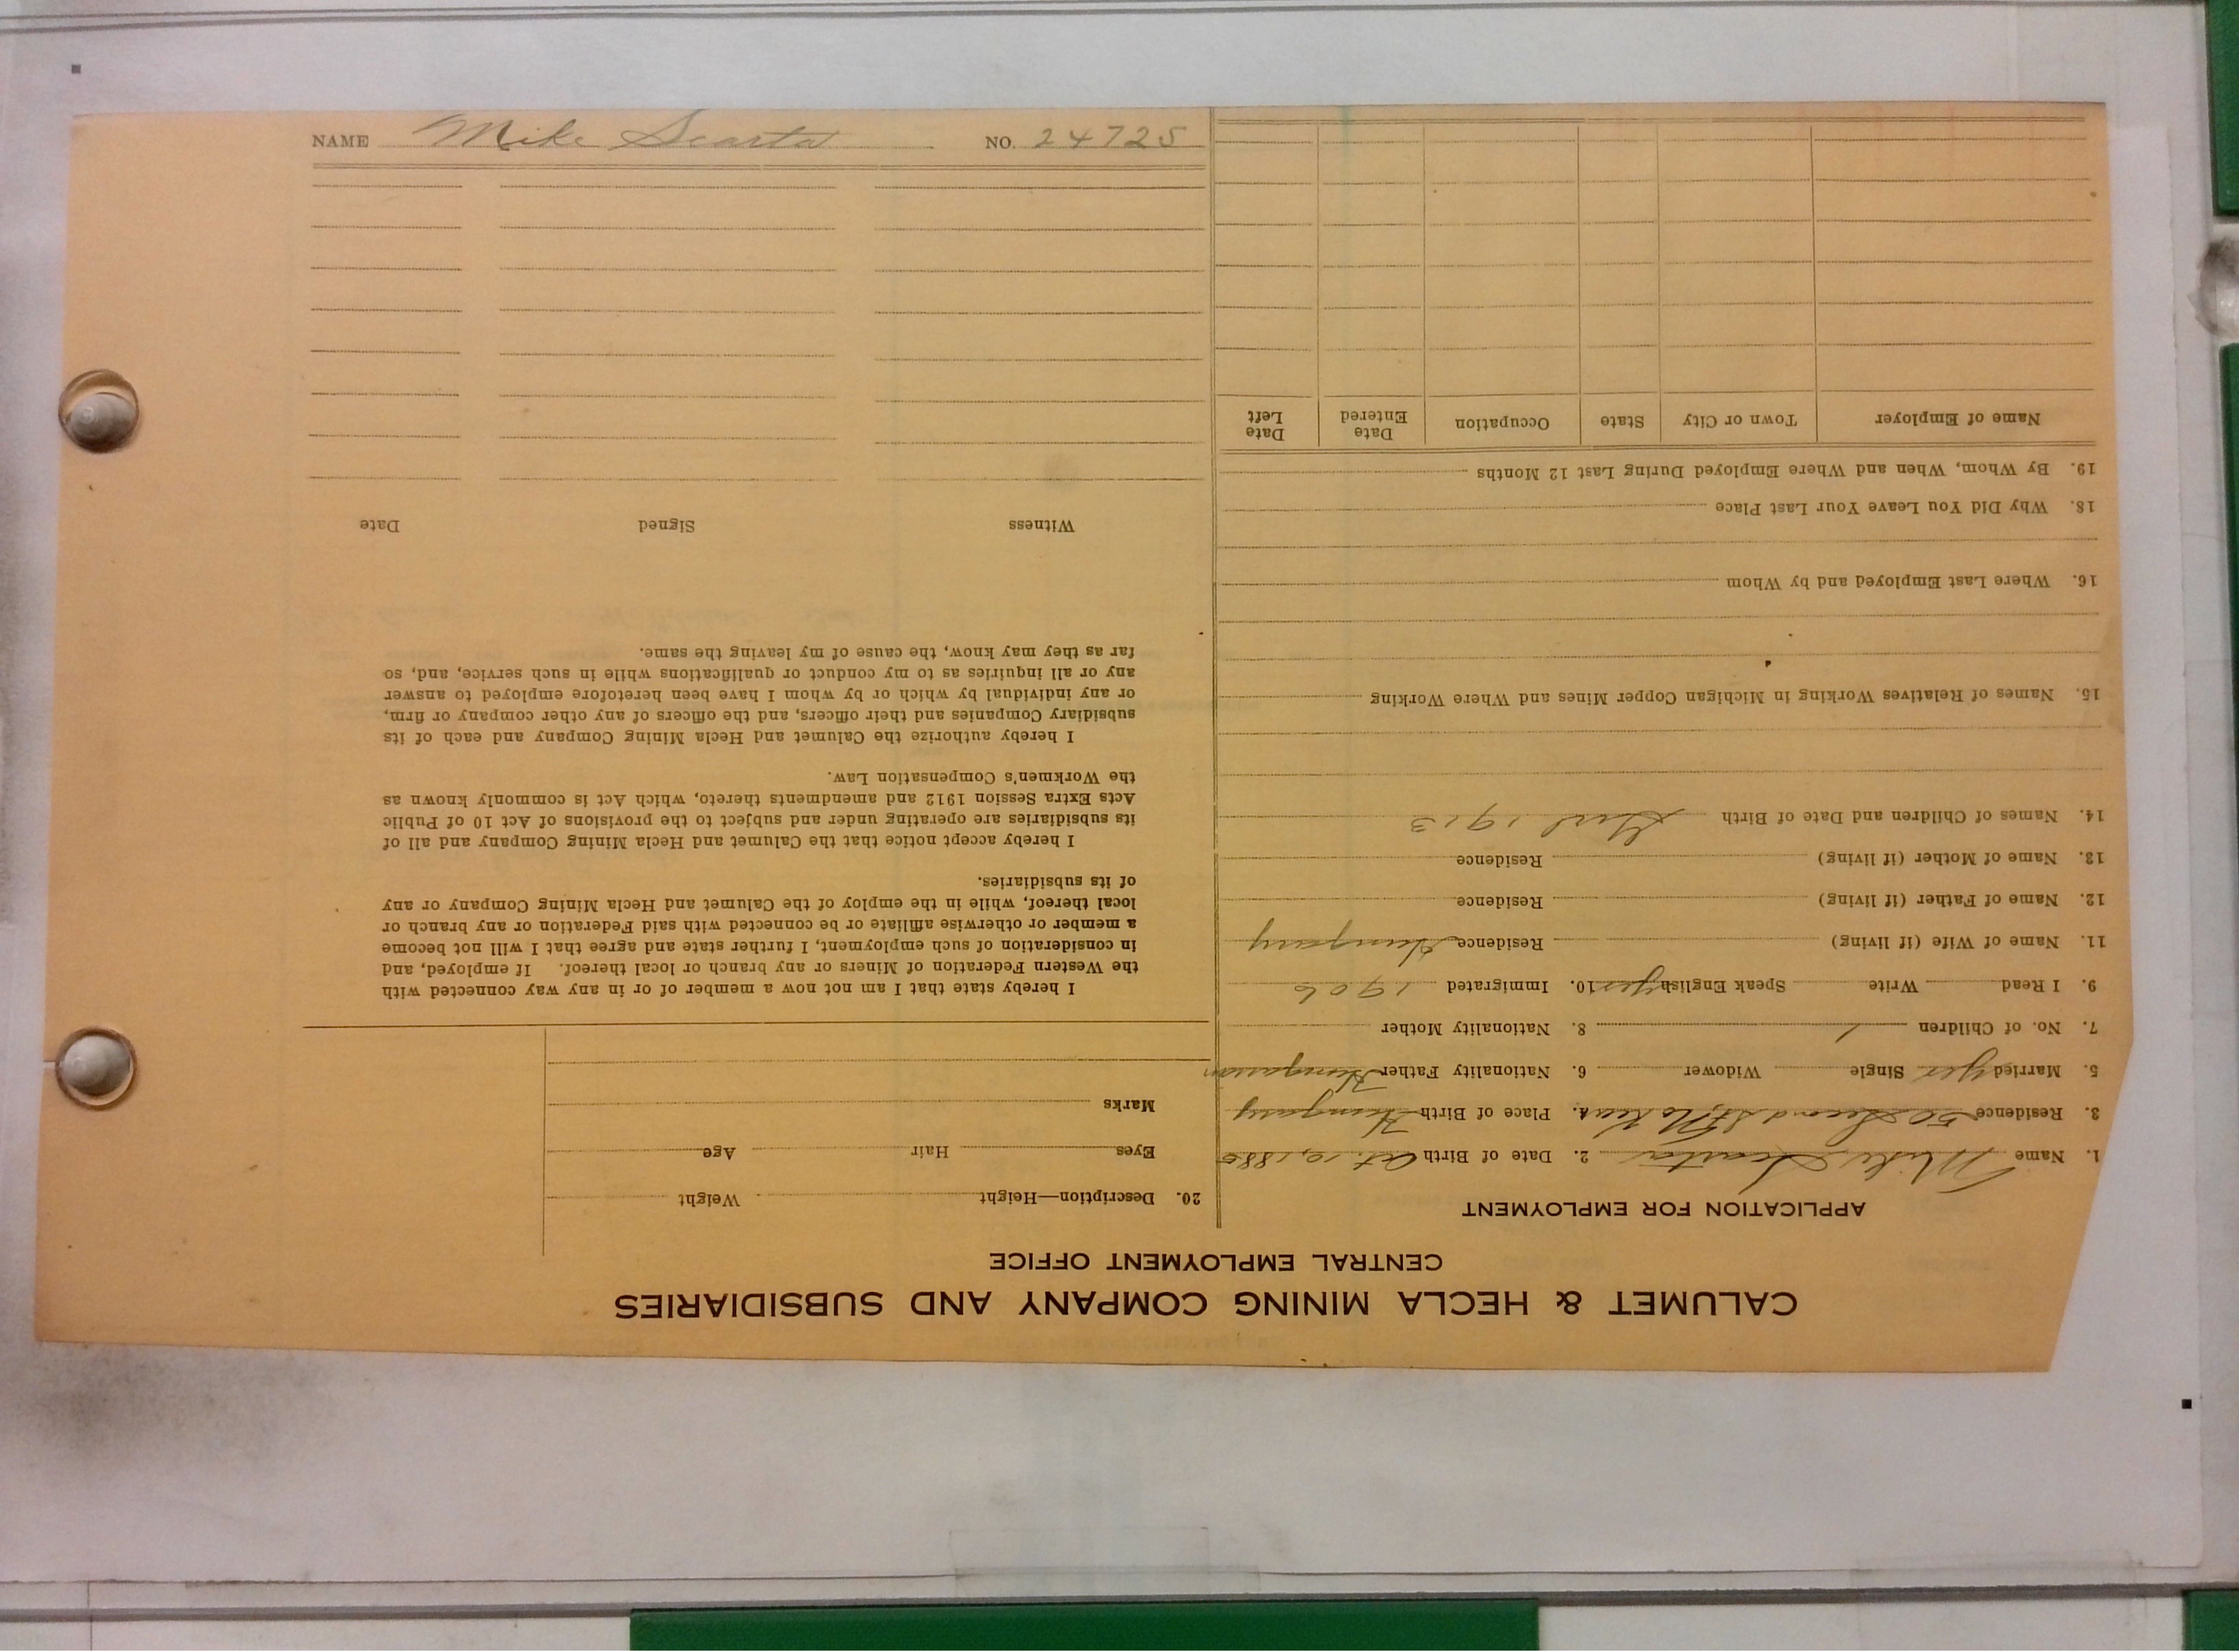 CALUMET & HECLA MINING COMPANY AND SUBSIDIARIES
CENTRAL EMPLOYMENT OFFICE
APPLICATION FOR EMPLOYMENT
1. Name Mike Scarta 2. Date of Birth Oct. 10, 1885
3. Residence 50 Second St, 4. Place of Birth Hungary
5. Married yes Single Widower 6. Nationality Father Hungarian
7. No. of Children 1 8. Nationality Mother
9. I Read Write Speak English yes 10. Immigrated 1906
11. Name of Wife (if living) Residence Hungary
12. Name of Father (if living) Residence
13. Name of Mother (if living) Residence
14. Names of Children and Date of Birth Girl 1913
15. Names of Relatives Working in Michigan Copper Mines and Where Working
16. Where Last Employed and by Whom
18. Why Did You Leave Your Last Place
19. By Whom, When and Where Employed During Last 12 Months
Name of Employer Town or City State Occupation Date Entered Date Left
20. Description—Height Weight
Eyes Hair Age
Marks
I hereby state that I am not now a member of or in any way connected with
the Western Federation of Miners or any branch or local thereof. If employed, and
in consideration of such employment, I further state and agree that I will not become
a member or otherwise affiliate or be connected with said Federation or any branch or
local thereof, while in the employ of the Calumet and Hecla Mining Company or any
of its subsidiaries.
I hereby accept notice that the Calumet and Hecla Mining Company and all of
its subsidiaries are operating under and subject to the provisions of Act 10 of Public
Acts Extra Session 1912 and amendments thereto, which Act is commonly known as
the Workmen's Compensation Law.
I hereby authorize the Calumet and Hecla Mining Company and each of its
subsidiary Companies and their officers, and the officers of any other company or firm,
or any individual by which or by whom I have been heretofore employed to answer
any or all inquiries as to my conduct or qualifications while in such service, and, so
far as they may know, the cause of my leaving the same.
Witness Signed Date
NAME Mike Scarta NO. 24725